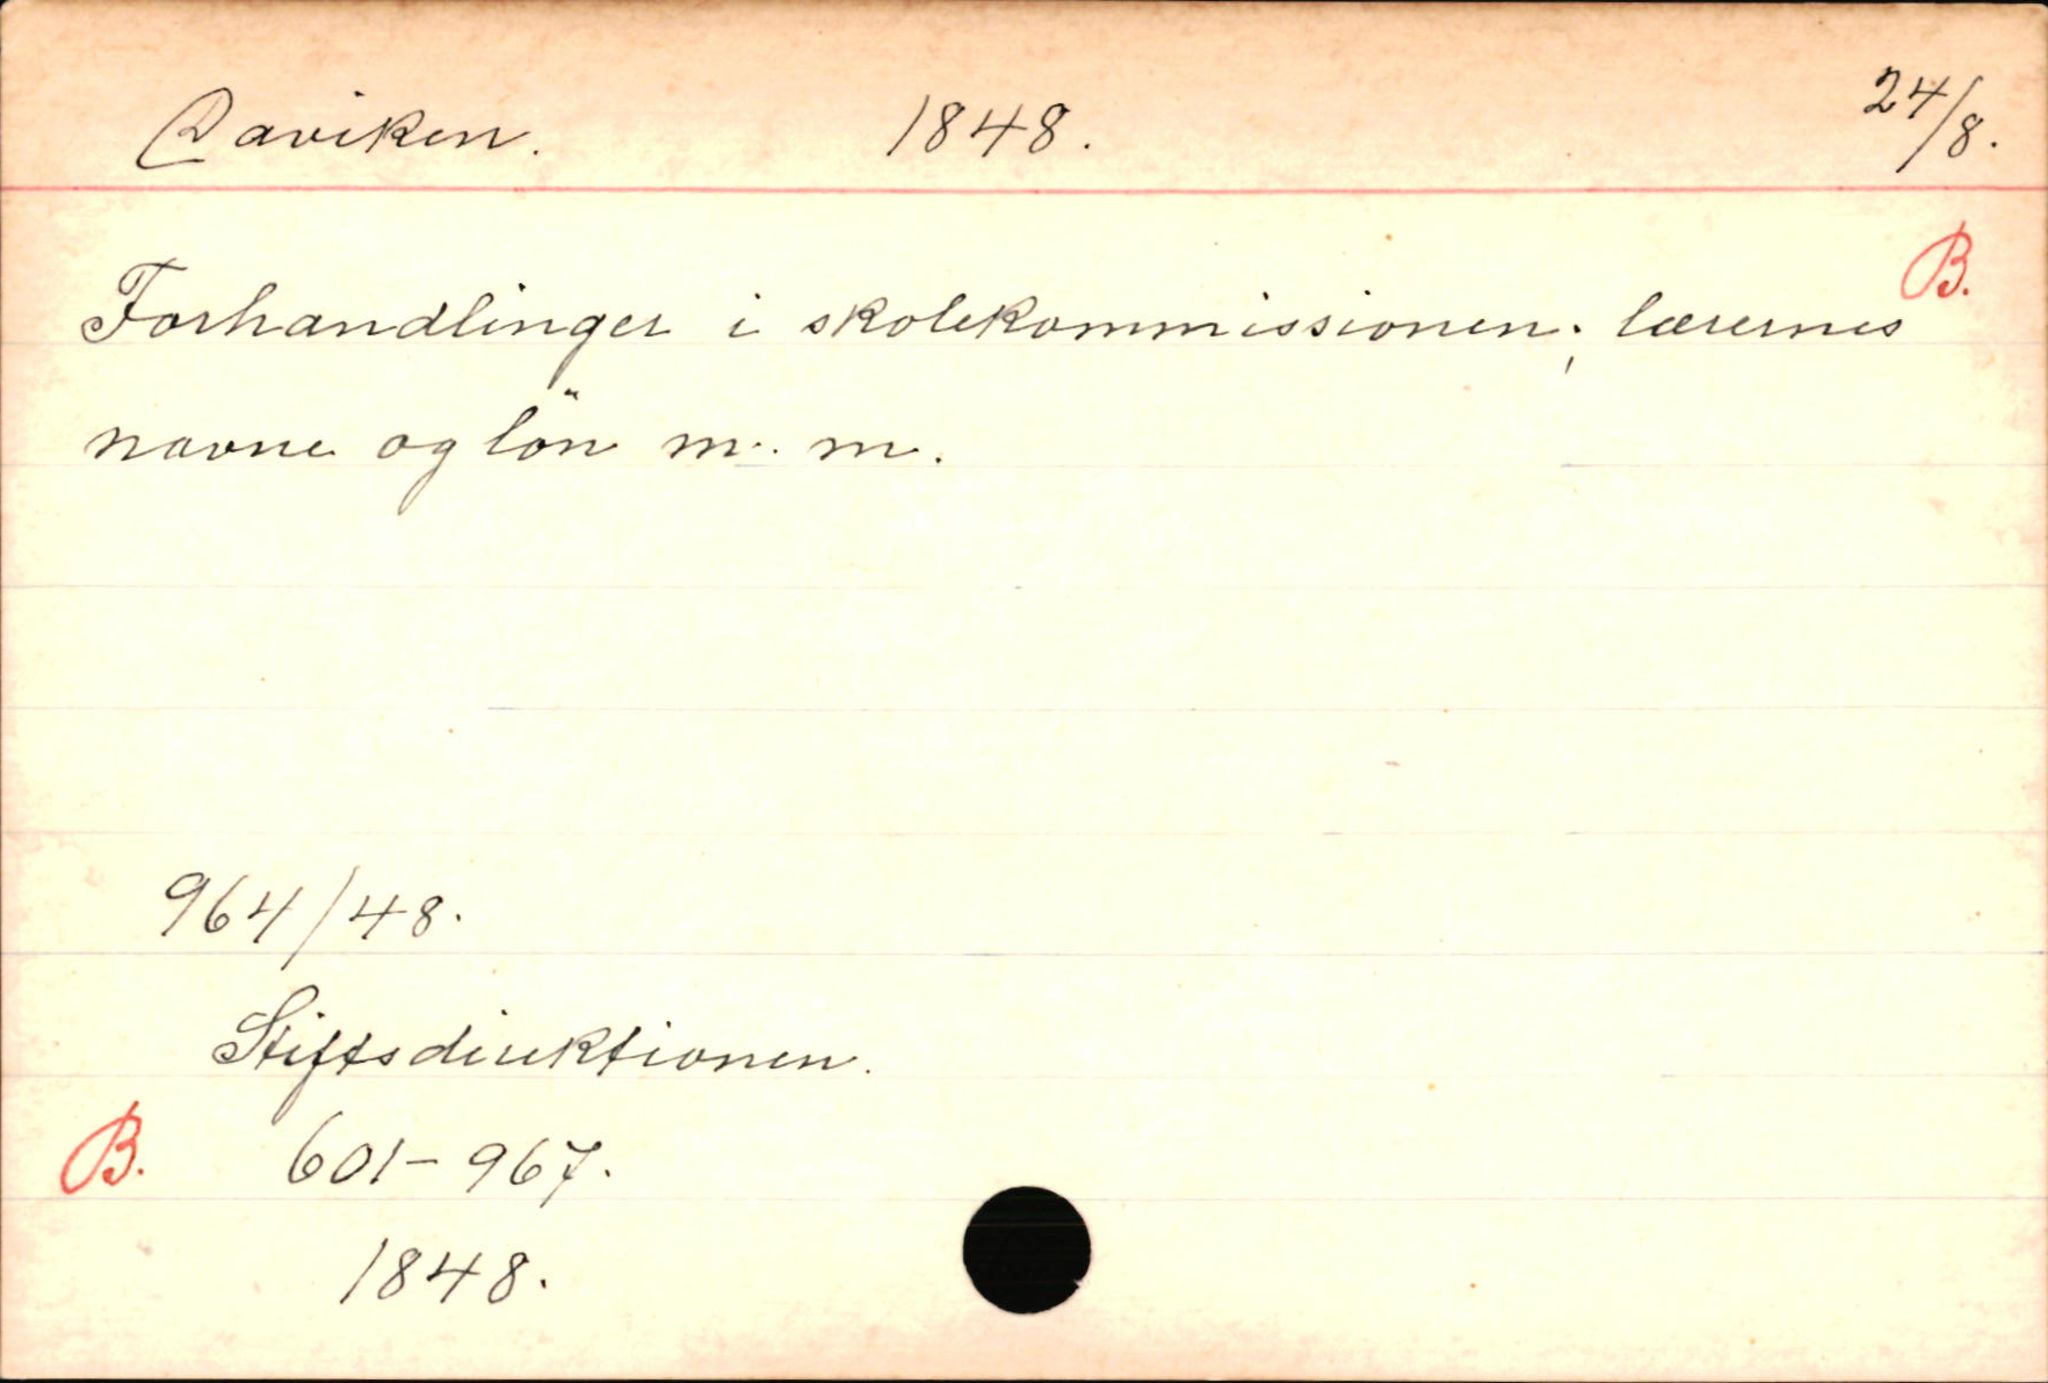 Daviken. 1848. 24/8.
B.
Forhandlinger i skolekommissionen; lærernes
navne og lön m. m.
964/48.
Stiftsdirektionen.
B. 601-967.
1848.